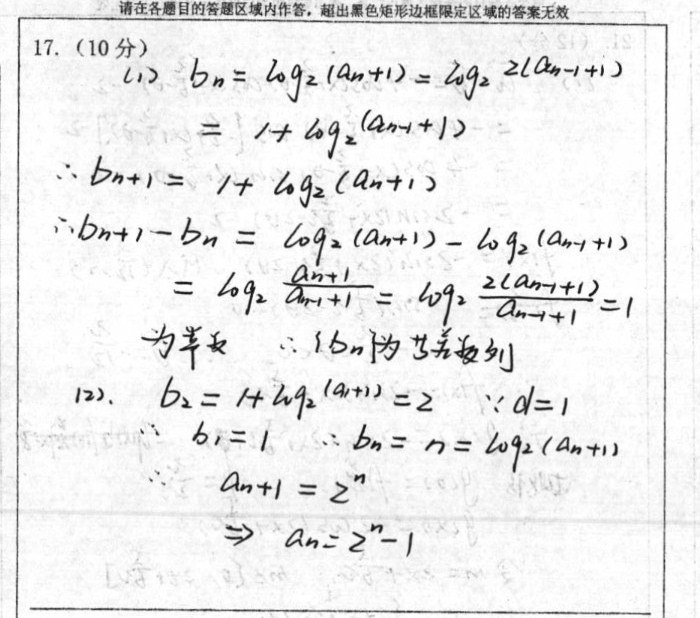 请在各题目的答题区域内作答，超出黑色矩形边框限定区域的答案无效
17.（10分）
(1) bn = log₂(an+1) = log₂ 2(an-1+1)
= 1+ log₂(an-1+1)
∴ bn+1 = 1+ log₂(an+1)
∴ bn+1 - bn = log₂(an+1) - log₂(an-1+1)
= log₂ (an+1)/(an-1+1) = log₂ 2(an-1+1)/(an-1+1) = 1
为常数 ∴{bn}为等差数列
(2). b₂ = 1+log₂(a1+1) = 2 ∵ d=1
∴ b₁ = 1 ∴ bn = n = log₂(an+1)
∴ an+1 = 2ⁿ
⇒ an = 2ⁿ-1